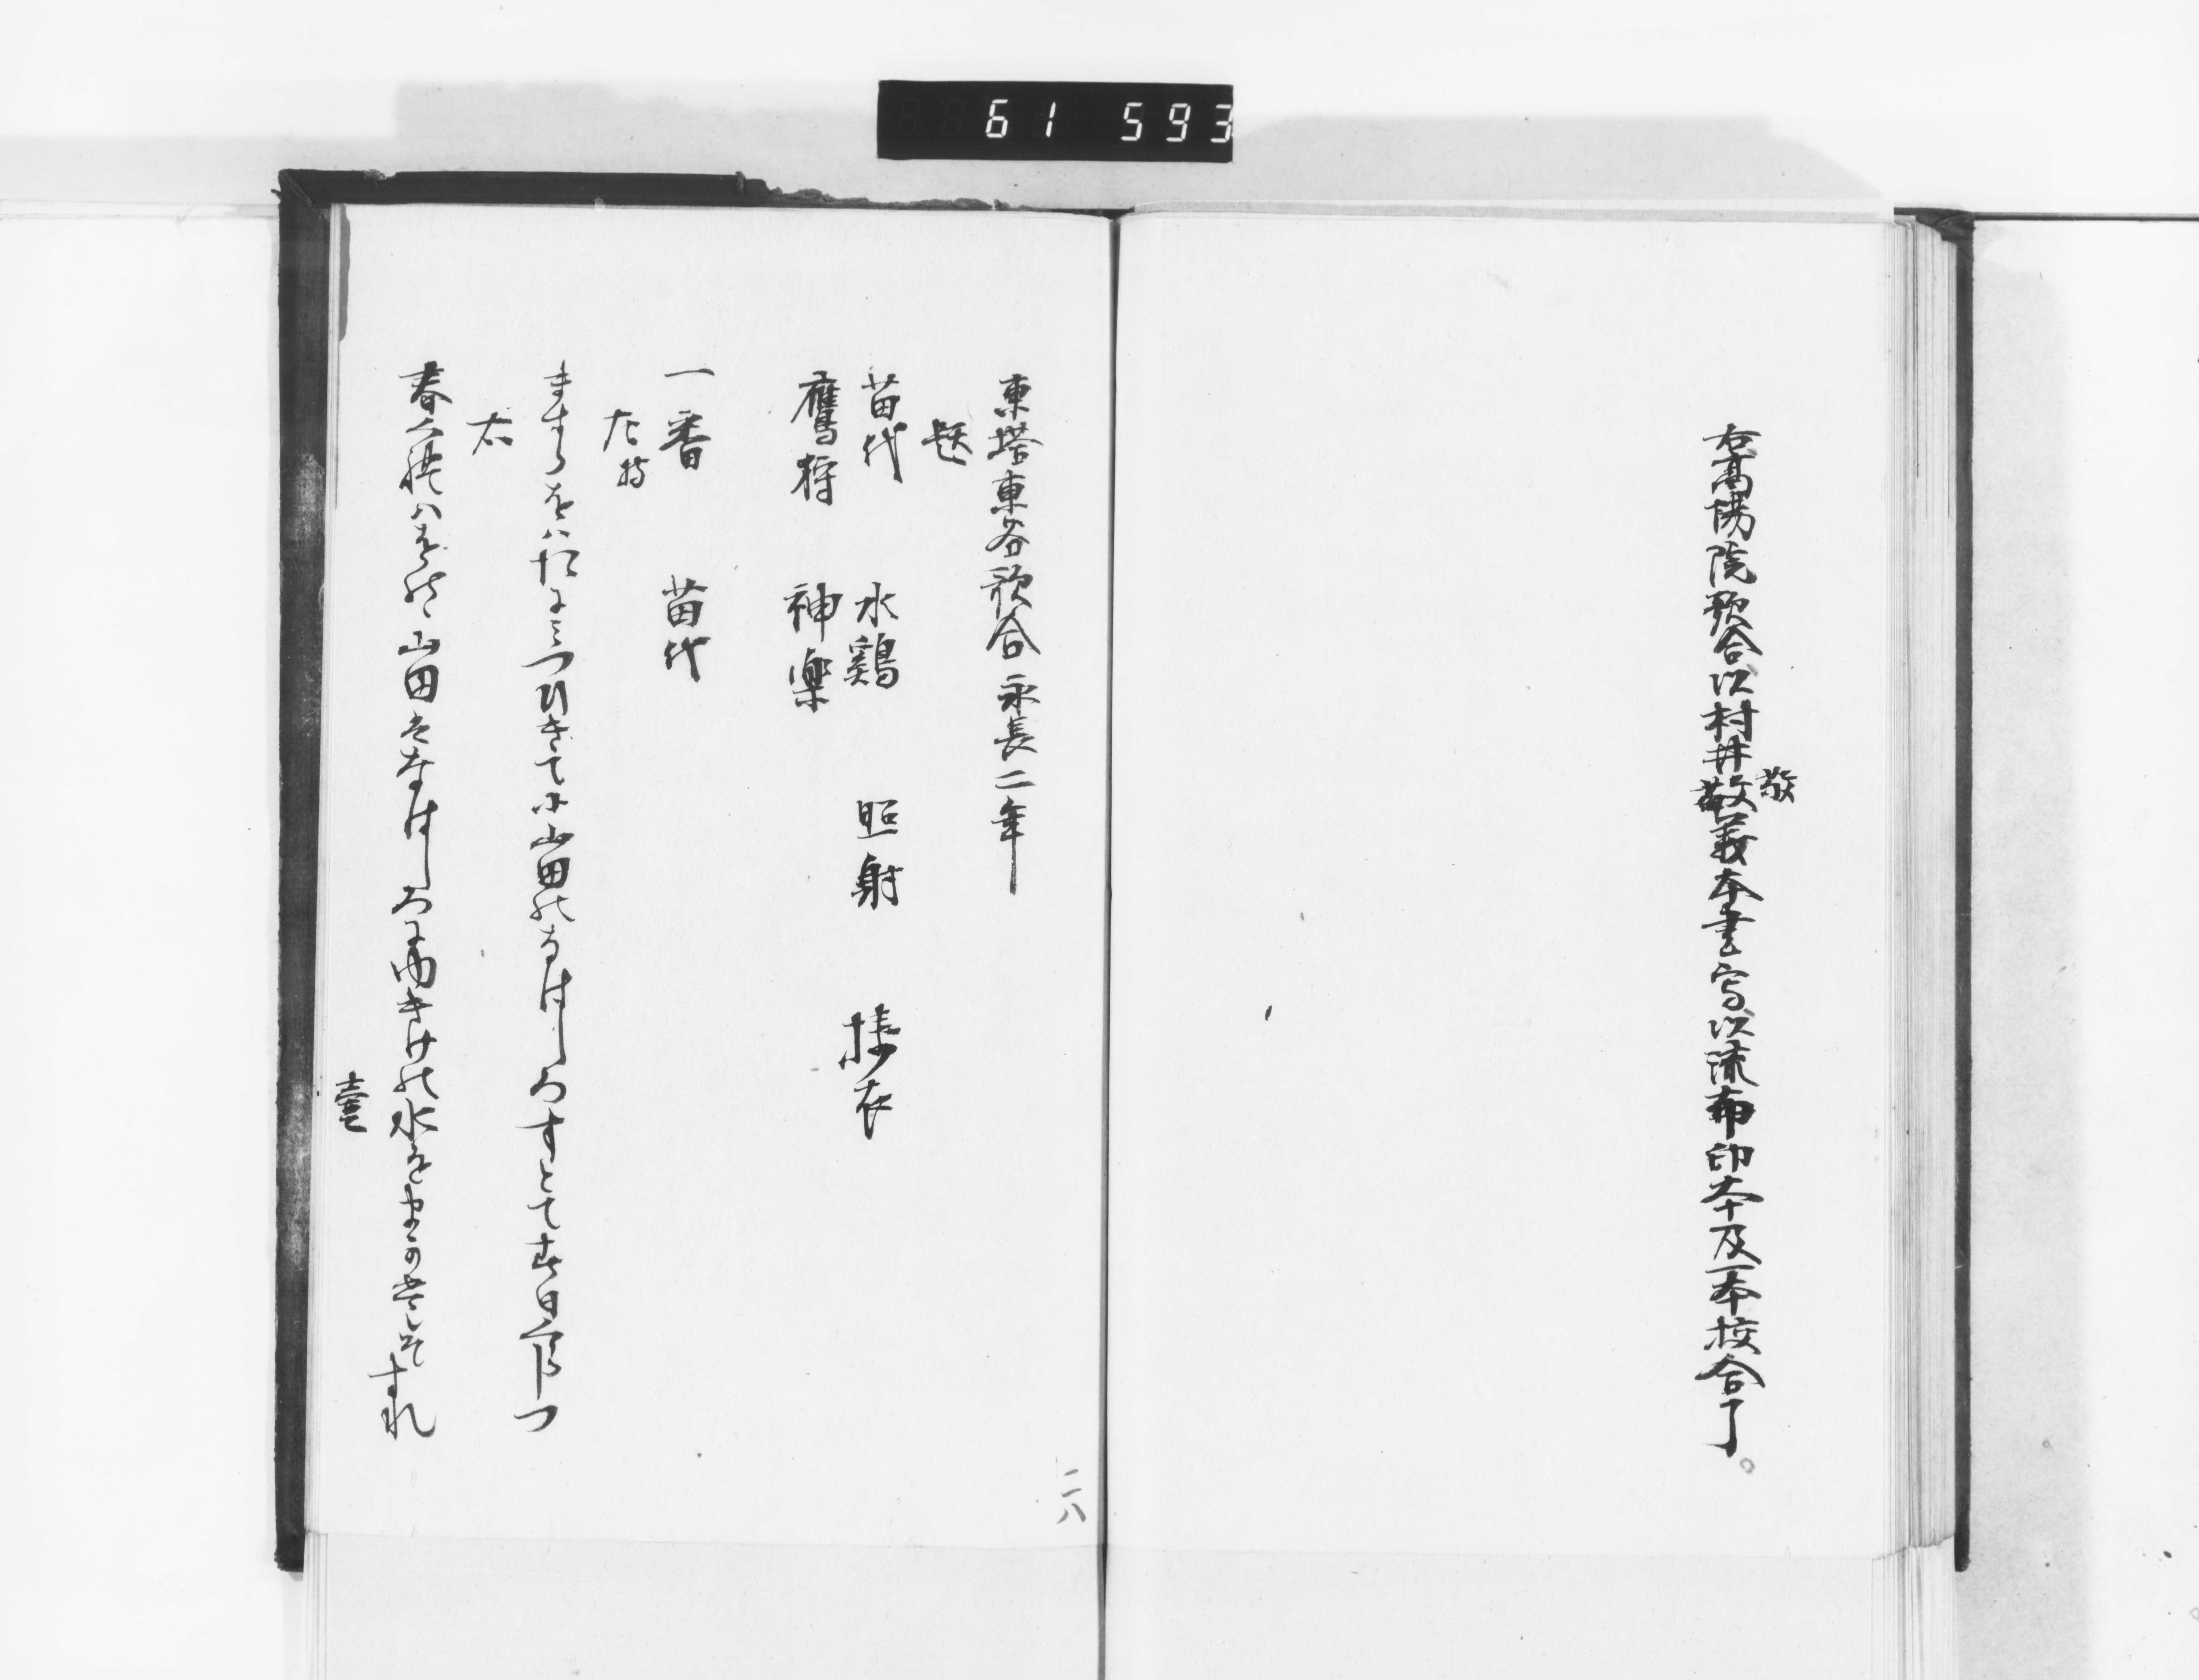 61 593
右高陽院歌合以村井敬義本書写以流布印本及一本挍合了。
敬
東塔東谷歌合 永長二年
題
苗代 水鶏 照射 擣衣
鷹狩 神楽
一番 苗代
左 持
ますらをはたにみつひきて小山田のなはしろすとて春日くらしつ
右
春くれは山田をなはしろにゆきけの水をまかせこそすれ
壹
二八